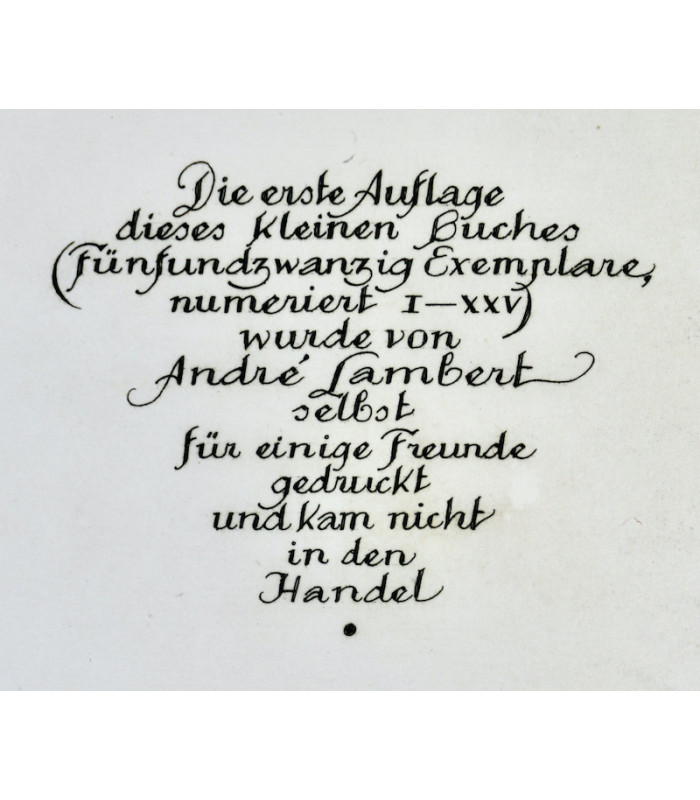 Die erste Auflage
dieses kleinen Buches
(fünfundzwanzig Exemplare,
numeriert I—XXV)
wurde von
André Lambert
selbst
für einige Freunde
gedruckt
und kam nicht
in den
Handel